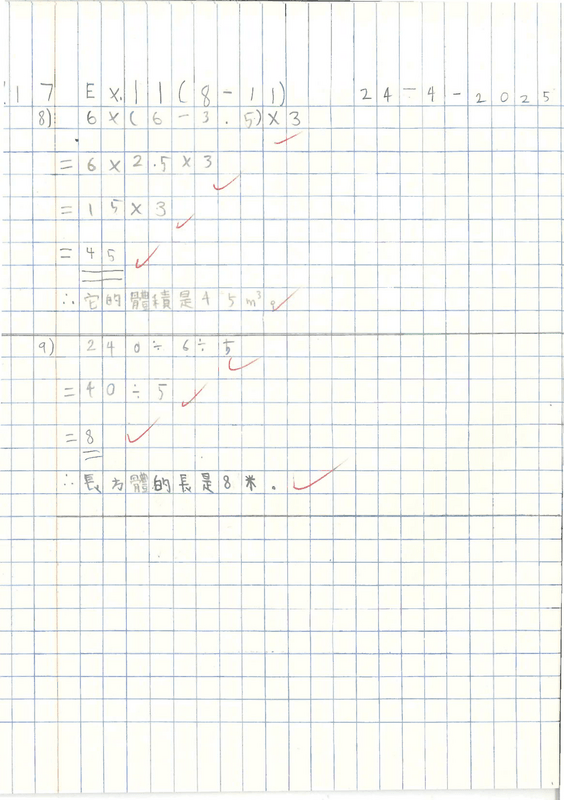 17 Ex.11(8-11) 24-4-2025
8) 6×(6-3.5)×3
=6×2.5×3
=15×3
=45
∴它的體積是45m³。
9) 240÷6÷5
=40÷5
=8
∴長方體的長是8米。